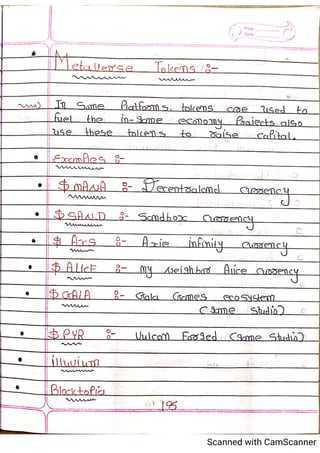 Metaverse Tokens :-
In Some Platforms, tokens are used to
fuel the in-game economy. Projects also
use these tokens to raise Capital.
Examples :-
$ MANA :- Decentraland Currency
$ SAND :- Sandbox Currency
$ Axs :- Axie infinity Currency
$ AlicE :- my neighbor Alice Currency
$ GALA :- Gala Games ecosystem
(Game Studio)
$ PYR :- Vulcan Forged (Game Studio)
illuvium
Blocktopia
195
Scanned with CamScanner